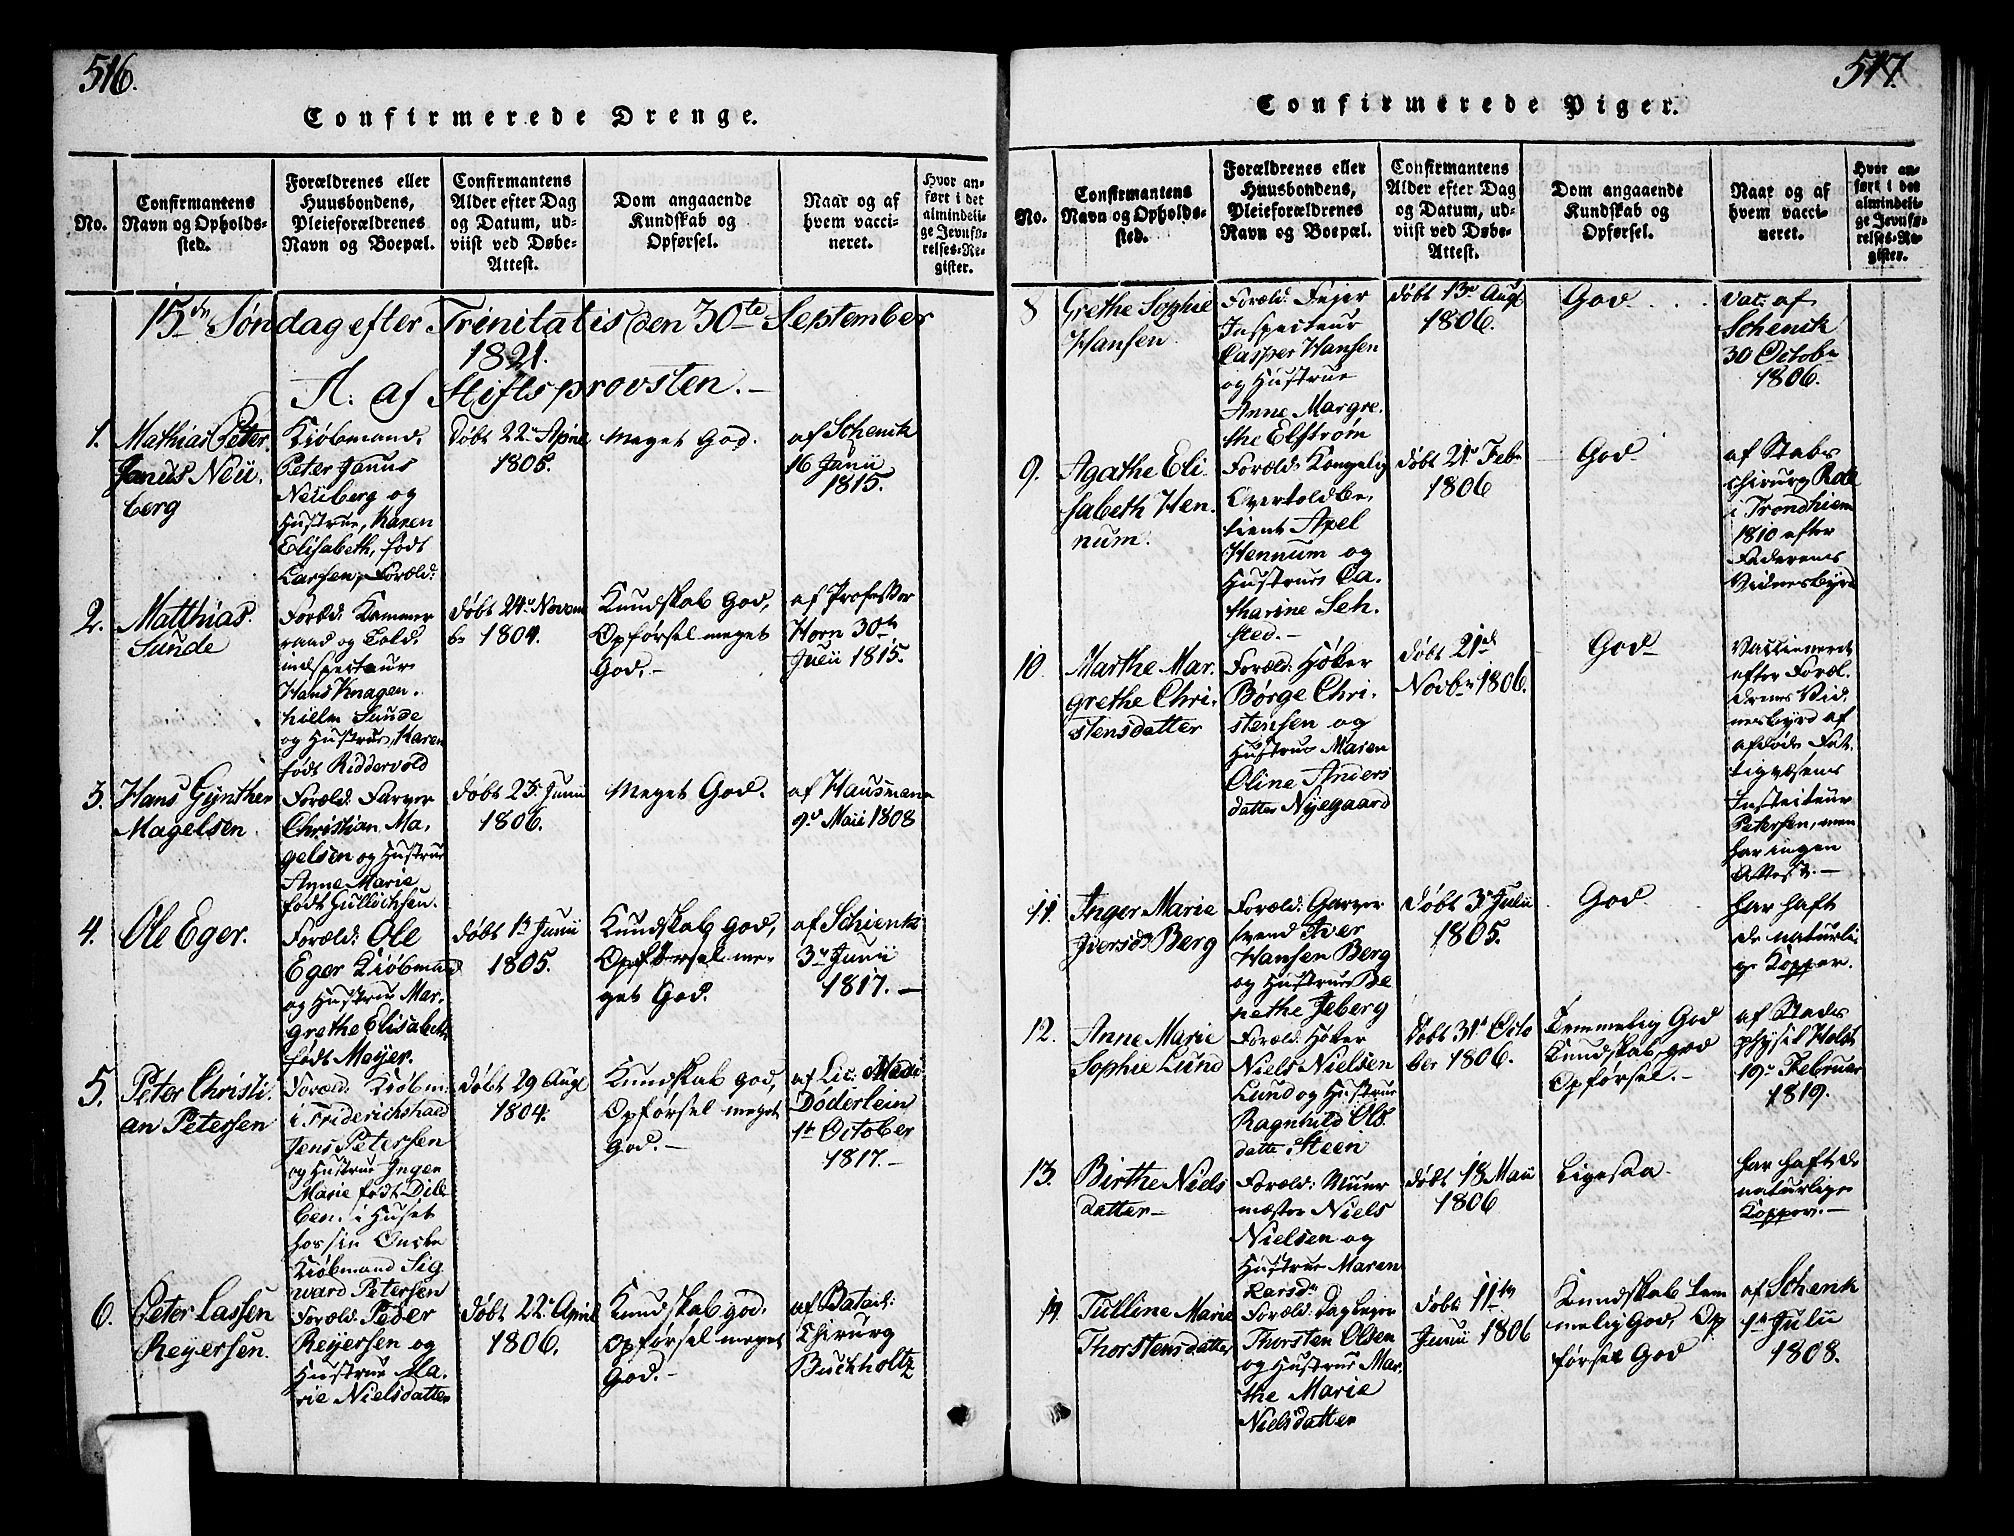 516.
Confirmerede Drenge.
No.
Confirmantens
Navn og Opholds-
sted.
Forældrenes eller
Huusbondens,
Pleieforældrenes
Navn og Boepæl.
Confirmantens
Alder efter Dag
og Datum, ud-
viist ved Døbe-
Attest.
Dom angaaende
Kundskab og
Opførsel.
Naar og af
hvem vacci-
neret.
Hvor an-
ført i det
almindeli-
ge Jevnfø-
relses-Re-
gister.
15de Søndag efter Trinitatis den 30te September
1821.
A. af Stiftsprovsten.-
1.
Mathias Peter
Janus Neu.
berg
Kiøbmand,
Peter Janus
Neuberg og
Hustrue, Karen
Elisabeth, født
Larsen, Foræld:
døbt 22. April
1805.
Meget God.
af Schenck
16 Junii
1815.
2.
Matthias
Sunde
Foræld: Kammer
raad og Told.
inspecteur
Hans Knagen.
hielm Sunde
og Hustrue, Karen
født Riddervold
døbt 24. Novem
br 1804.
Kundskab God,
Opførsel meget
God.-
af Professor
Horn 30te
Juni 1815.
3.
Hans Gynther
Magelsen.
Foræld: Farver
Christian Ma,
gelsen og Hustrue
Anne Marie
født Gullichsen.
døbt 23. Junii
1806.
Meget God.
af Hausmann
9. Maii 1808
4.
Ole Eger.
Foræld: Ole
Eger Kiøbmand
og Hustrue Mar.
grethe Elisabeth
født Meyer.
døbt 1te Junii
1805.
Kundskab God,
Opførsel me-
get God.
af Schienk
3. Junii
1817.-
5.
Peter Christi.
an Petersen
Foræld: Kiøbm:
i Friderichshald
Jens Petersen
og Hustrue Inger
Marie født Dile
ben. i Huset
hos sin Onkle
Kiøbmand Sig
ward Petersen
døbt 29 Augl
1804.
Kundskab god,
Opførsel meget
God.-
af Lic: Medi
Døderlein
1te October
1817.-
6.
Peter Lassen
Reyersen.
Foræld: Peder
Reyersen og
Hustrue Ma.
rie Nielsdatter
døbt 22. April
1806.
Kundskab god,
Opførsel meget
God.-
af Batail:
Chirurg
Buckholtz
517.
Confirmerede Piger.
No.
Confirmantens
Navn og Opholds-
sted.
Forældrenes eller
Huusbondens,
Pleieforældrenes
Navn og Boepæl.
Confirmantens
Alder efter Dag
og Datum, ud-
viist ved Døbe-
Attest.
Dom angaaende
Kundskab og
Opførsel.
Naar og af
hvem vacci-
neret.
Hvor an-
ført i det
almindeli-
ge Jevnfø-
relses-Re-
gister.
8
Grethe Sophie
Hansen.
Foræld: Fejer
Inspecteur
Casper Hansen
og Hustrue
Anne Margre.
the Elstrøm
døbt 13. Augl
1806.
God
vac. af
Schenck
30 Octobr
1806.
9.
Agathe Eli.
sabeth Hen.
num.
Foræld: Kongelig
Overtoldbe,
tient Axel
Hennum og
Hustrue Ca.
tharine Seh.
sted.-
døbt 21. Febr
1806
God
af Stabs
chirurg Rode
i Trondhiem
1810 efter
Faderens
Vidnesbyrd
10
Marthe Mar.
grethe Chri.
stensdatter
Foræld: Høker
Børge Chri.
stensen og
Hustrue Maren
Oline Anders
datter Nyegaard
døbt 21de
Novbr 1806.
God
Vaccineret
efter Foræl.
drenes Vid.
nesbyrd af
afdøde Fat.
tigvæsens
Inspecteur
Petersen, men
har ingen
Attest.-
11
Inger Marie
Iversdr Berg
Foræld: Garver
svend Iver
Hansen Berg
og Hustrue Be
pethe Jeberg
døbt 3. Julii
1805.
God
har haft
de naturli.
ge Kopper.
12.
Anne Marie
Sophie Lund
Foræld: Høker
Niels Nielsen
Lund og Hustrue
Ragnhild Ols.
datter Steen
døbt 31. Octo
ber 1806.
Temmelig God
Kundskab, god
Opførsel.-
af Stads
physic Holst
19. Februar
1819.
13.
Birthe Niels
datter-
Foræld: Muur
mester Niels
Nielsen og
Hustrue Maren
Larsdr
døbt 18 Maii
1806
Ligesaa.
har haft de
naturlige
Kopper.-
14
Tulline Marie
Thorstensdatter
Foræld: Dagleyer
Thorsten Olsen
og Hustrue Mar
the Marie
Nielsdatter
døbt 11te
Junii 1806
Kundskab tem
melig God, Op
førsel God
af Schenk
1te Julii
1808.